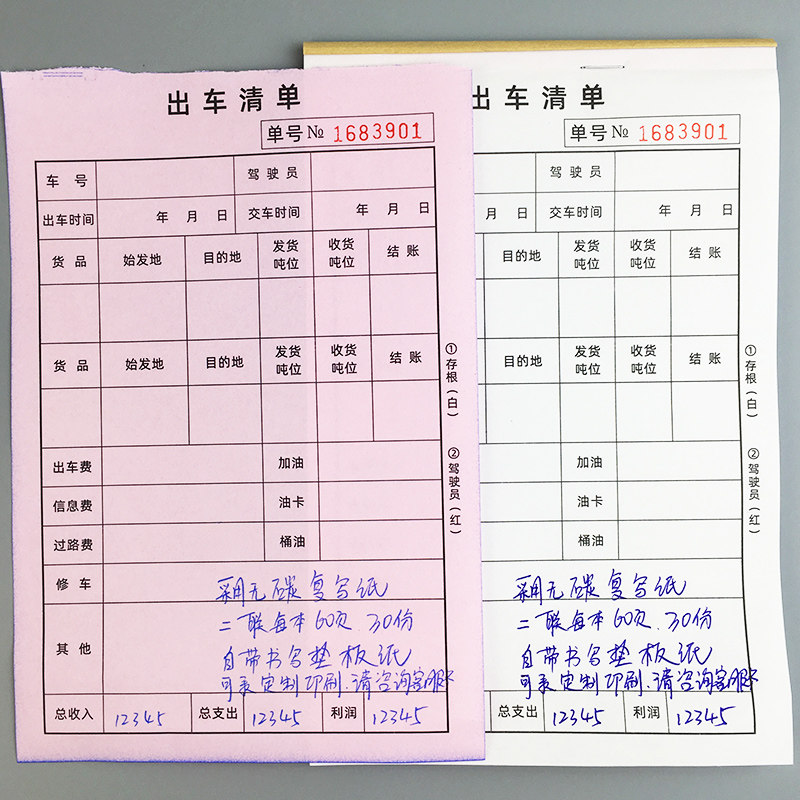 出车清单
单号 № 1683901
车号 驾驶员
出车时间 年 月 日 交车时间 年 月 日
货品 始发地 目的地 发货吨位 收货吨位 结账
货品 始发地 目的地 发货吨位 收货吨位 结账
出车费 加油
信息费 油卡
过路费 桶油
修车
其他
采用无碳复写纸
二联每本60页 30份
自带书写垫板纸
可来定制印刷.请咨询客服
总收入 12345 总支出 12345 利润 12345
①存根(白) ②驾驶员(红)
出车清单
单号 № 1683901
驾驶员
月 日 交车时间 年 月 日
目的地 发货吨位 收货吨位 结账
目的地 发货吨位 收货吨位 结账
加油
油卡
桶油
采用无碳复写纸
二联每本60页.30份
自带书写垫板纸
可来定制印刷.请咨询客服
总支出 12345 利润 12345
①存根(白) ②驾驶员(红)